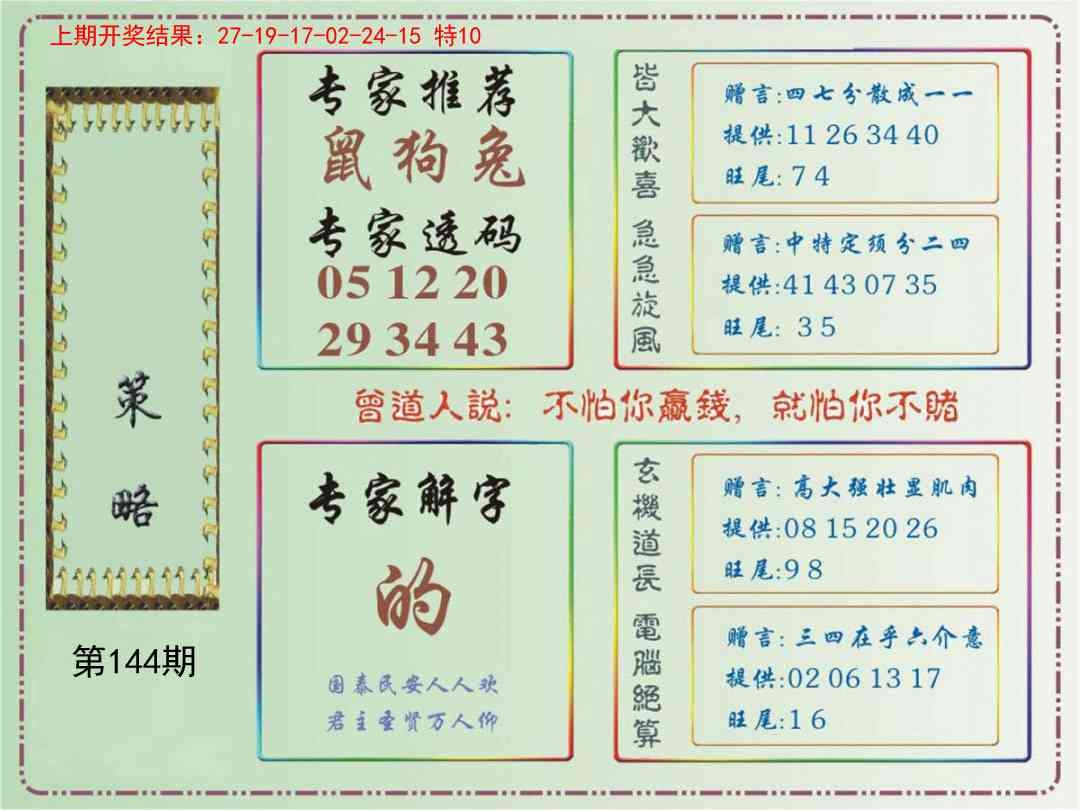 上期开奖结果：27-19-17-02-24-15 特10
策略
第144期
专家推荐
鼠狗兔
专家透码
05 12 20
29 34 43
皆大歡喜
赠言:四七分散成一一
提供:11 26 34 40
旺尾: 7 4
急急旋風
赠言:中特定须分二四
提供:41 43 07 35
旺尾: 3 5
曾道人説：不怕你贏錢，就怕你不賭
专家解字
的
国泰民安人人欢
君主圣贤万人仰
玄機道長
赠言: 高大强壮显肌肉
提供:08 15 20 26
旺尾:9 8
電腦絕算
赠言: 三四在乎六介意
提供:02 06 13 17
旺尾:1 6